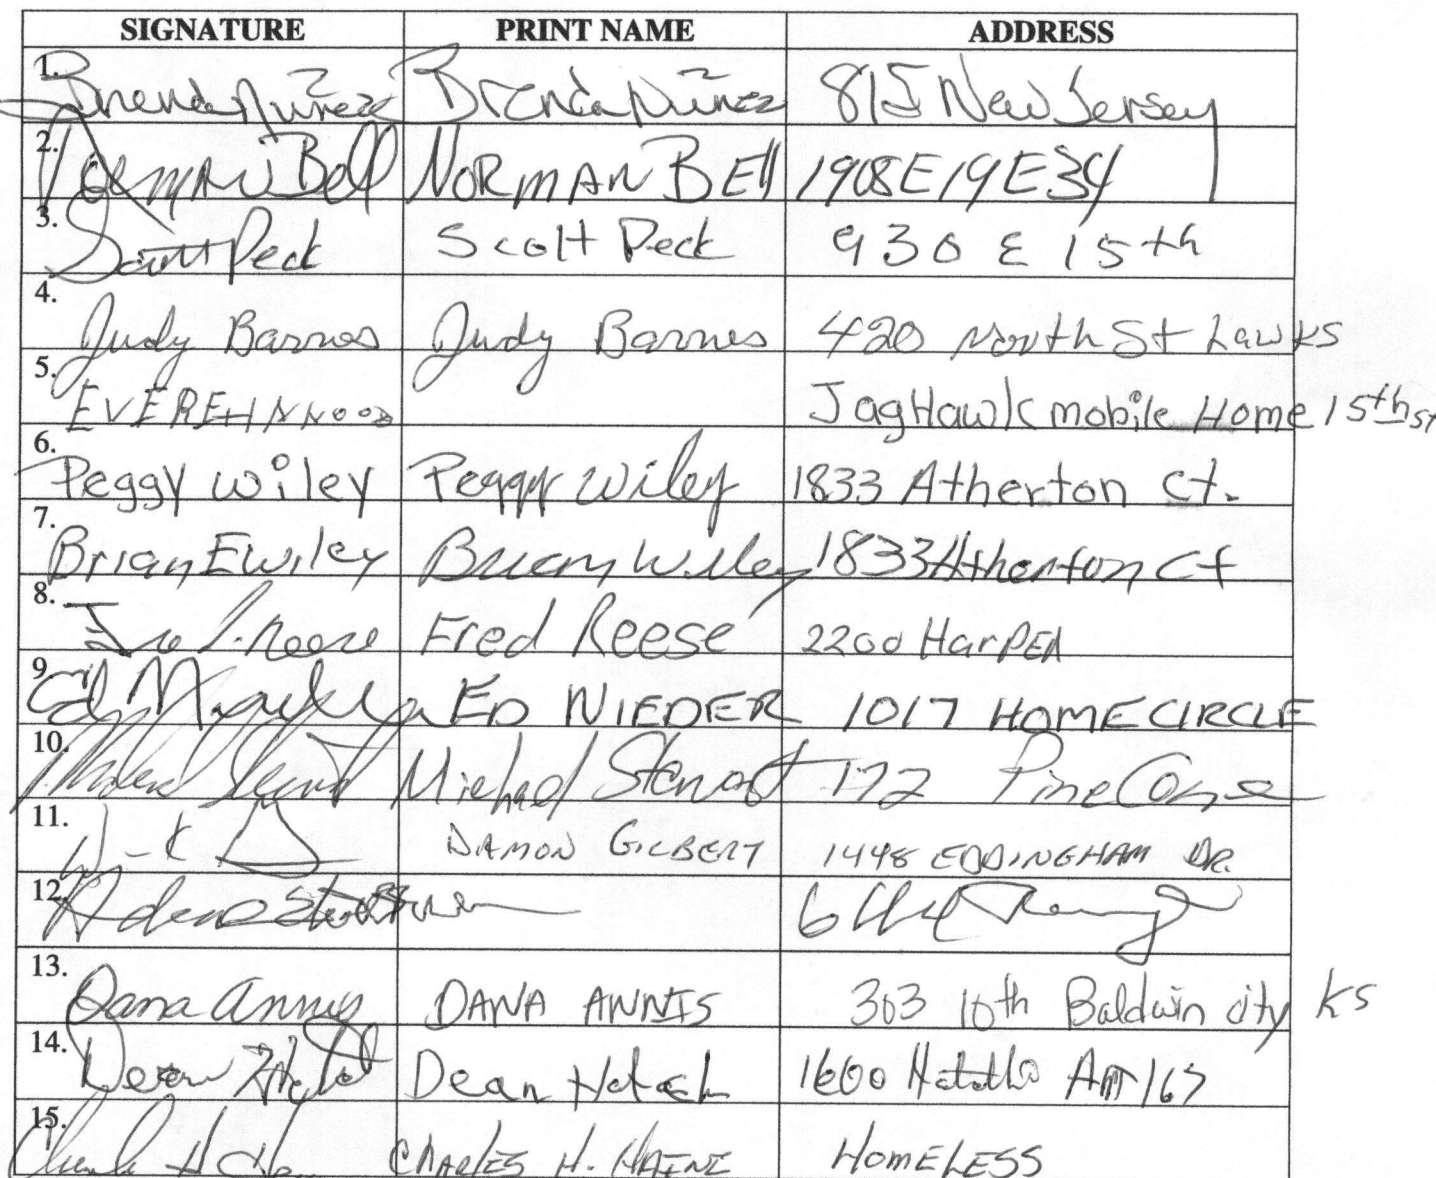 SIGNATURE PRINT NAME ADDRESS
1. Brenda Nuñez Brenda Nuñez 815 New Jersey
2. Norman Bell NORMAN BEll 1908 E 19 E34
3. Scott Peck Scott Peck 930 E 15th
4. Judy Barnes Judy Barnes 420 North St Law KS
5. EVERETT JagHawk mobile Home 15th st
6. Peggy Wiley Peggy Wiley 1833 Atherton Ct.
7. Brian E Wiley Brian Wiley 1833 Atherton Ct
8. Reese Fred Reese 2200 Harper
9. Ed ED NIEDER 1017 HOME CIRCLE
10. Michael Stewart Michael Stewart 172 Pine Cone
11. DAMON GILBERT 1448 EDDINGHAM DR.
12.
13. Dana Annis DANA ANNIS 303 10th Baldwin city KS
14. Dean Dean 1600 Apt 167
15. Charles H CHARLES H. HAINE HOMELESS